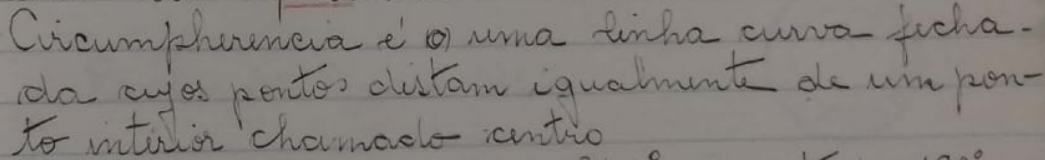 Circumpherencia é (o) uma linha curva fecha-
da cujos pontos distam igualmente de um pon-
to interior chamado centro